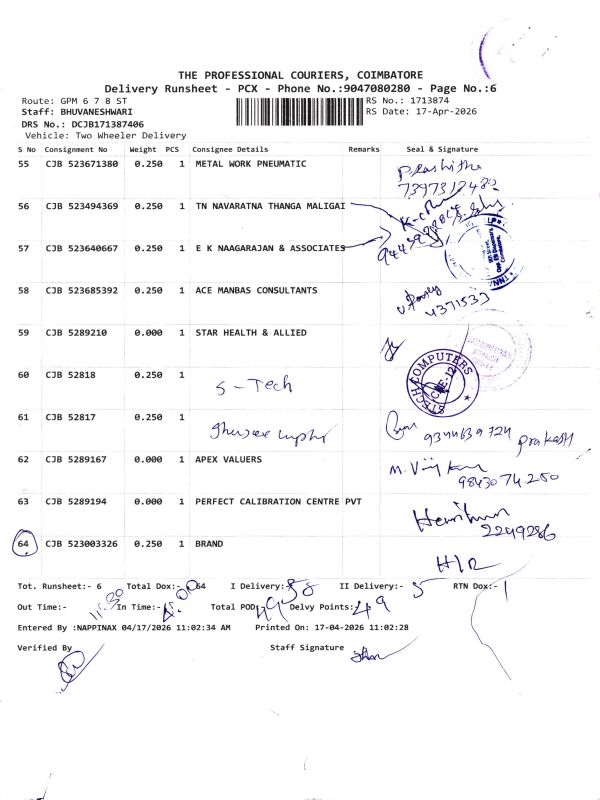 THE PROFESSIONAL COURIERS, COIMBATORE
Delivery Runsheet - PCX - Phone No.:9047080280 - Page No.:6
Route: GPM 6 7 8 ST
RS No.: 1713874
Staff: BHUVANESHWARI
RS Date: 17-Apr-2026
DRS No.: DCJB171387406
Vehicle: Two Wheeler Delivery
S No Consignment No Weight PCS Consignee Details Remarks Seal & Signature
55 CJB 523671380 0.250 1 METAL WORK PNEUMATIC
56 CJB 523494369 0.250 1 TN NAVARATNA THANGA MALIGAI
57 CJB 523640667 0.250 1 E K NAAGARAJAN & ASSOCIATES
58 CJB 523685392 0.250 1 ACE MANBAS CONSULTANTS
4371533
59 CJB 5289210 0.000 1 STAR HEALTH & ALLIED
60 CJB 52818 0.250 1 S-Tech
STECH COMPUTERS
61 CJB 52817 0.250 1
9344639724 prakash
62 CJB 5289167 0.000 1 APEX VALUERS
9843074250
63 CJB 5289194 0.000 1 PERFECT CALIBRATION CENTRE PVT
2249286
64 CJB 523003326 0.250 1 BRAND
Tot. Runsheet:- 6 Total Dox:- 64 I Delivery:- 58 II Delivery:- 5 RTN Dox:- 1
Out Time:- 11.30 In Time:- Total POD: Delvy Points: 49
Entered By :NAPPINAX 04/17/2026 11:02:34 AM Printed On: 17-04-2026 11:02:28
Verified By Staff Signature